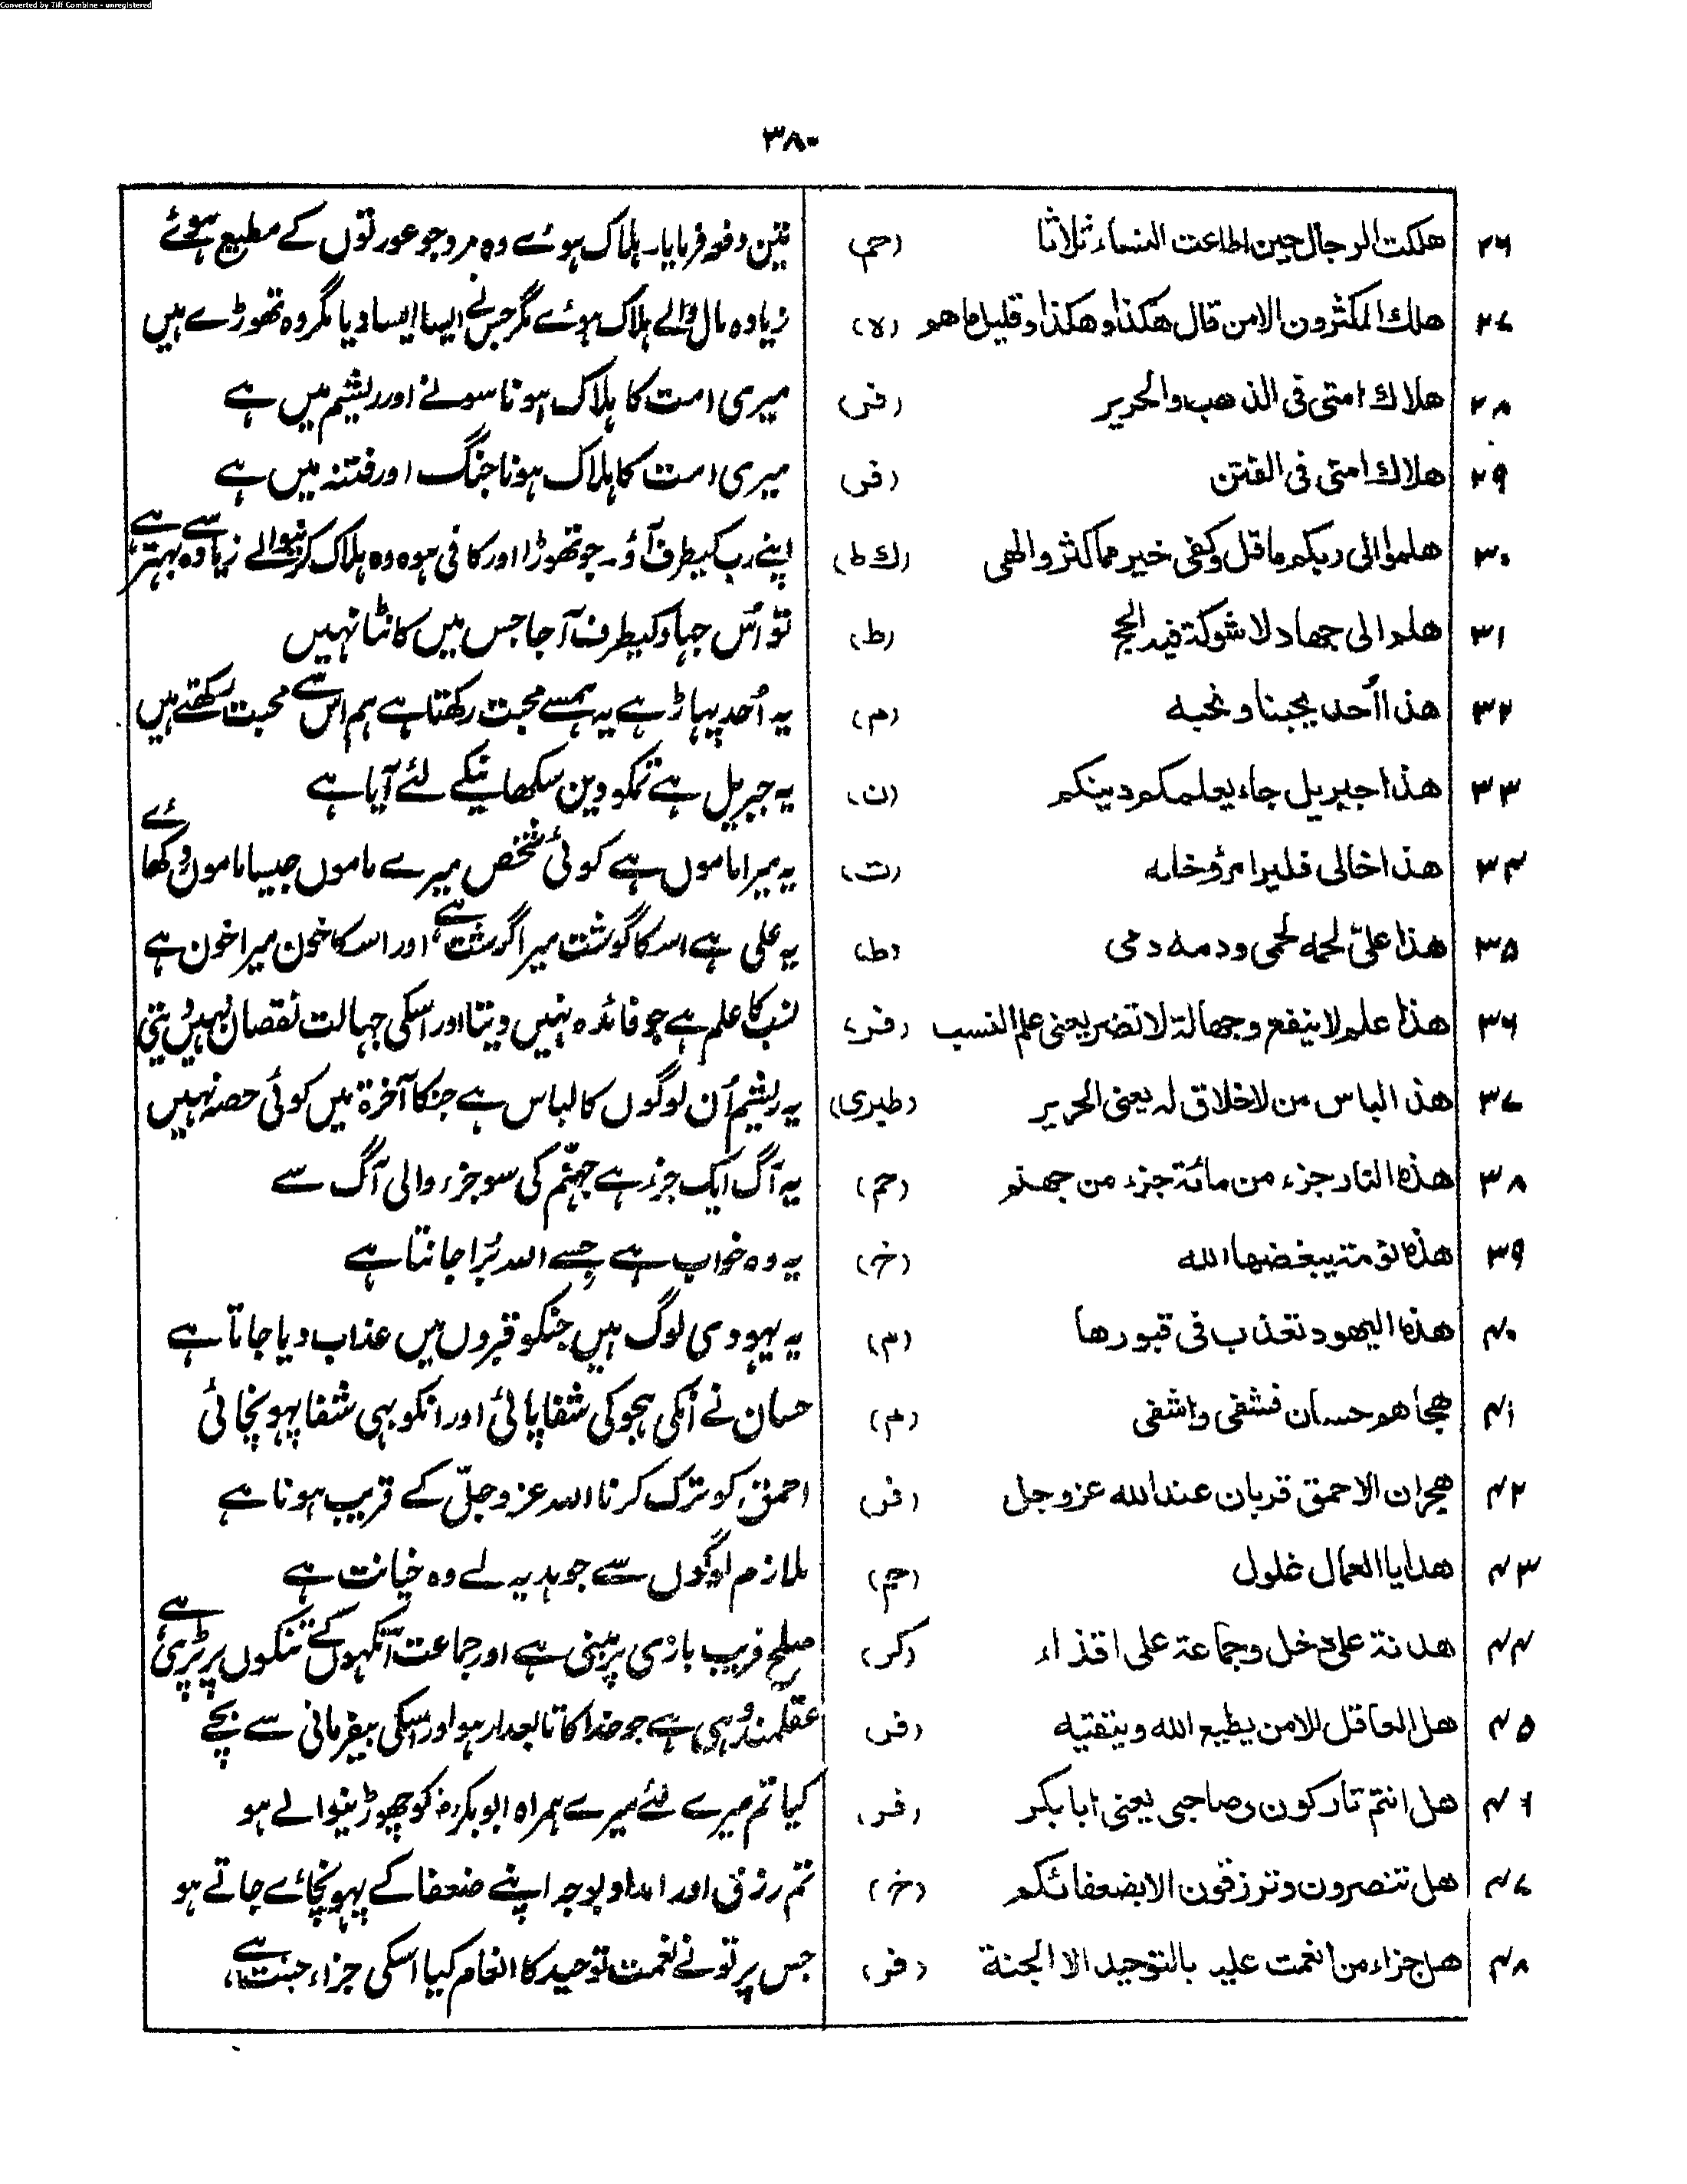 Converted by Tiff Combine - unregistered
٣٨٠
٢٦ هلكت الرجال حين اطاعت النساء ثلاثا (حم) تین دفعہ فرمایا۔ ہلاک ہوئے وہ مرد جو عورتوں کے مطیع ہوئے
٢٧ هلك المكثرون الا من قال هكذا وهكذا وقليل ما هم (ه) زیادہ مال والے ہلاک ہوئے مگر جس نے ایسا ایسا دیا مگر وہ تھوڑے ہیں
٢٨ هلاك امتى فى الذهب والحرير (فر) میری امت کا ہلاک ہونا سونے اور ریشیم میں ہے
٢٩ هلاك امتى فى الفتن (فر) میری امت کا ہلاک ہونا جنگ اور فتنہ میں ہے
٣٠ هلموا الى ربكم ما قل وكفى خير مما كثر والهى (ك ط) اپنے رب کیطرف آؤ۔ جو تھوڑا اور کافی ہو وہ ہلاک کرنیوالے زیادہ سے بہتر ہے
٣١ هلم الى جهاد لا شوكة فيه الحج (ط) تو اُس جہاد کیطرف آ جا جس میں کانٹا نہیں
٣٢ هذا اُحد يحبنا ونحبه (م) یہ اُحد پہاڑ ہے یہ ہمسے محبت رکھتا ہے ہم اس سے محبت رکھتے ہیں
٣٣ هذا جبريل جاء يعلمكم دينكم (ن) یہ جبریل ہے تمکو دین سکھانیکے لئے آیا ہے
٣٤ هذا خالى فليرا مرؤ خاله (ت) یہ میرا ماموں ہے کوئی شخص میرے ماموں جیسا ماموں دکھائے
٣٥ هذا علىّ لحمه لحمى ودمه دمى (ط) یہ علی ہے اسکا گوشت میرا گوشت ہے، اور اسکا خون میرا خون ہے
٣٦ هذا علم لا ينفع وجهالة لا تضر يعنى علم النسب (فر) نسب کا علم ہے جو فائدہ نہیں دیتا اور اسکی جہالت نقصان نہیں دیتی
٣٧ هذا لباس من لا خلاق له يعنى الحرير (طبرى) یہ ریشیم اُن لوگوں کا لباس ہے جنکا آخرۃ میں کوئی حصہ نہیں
٣٨ هذه النار جزء من مائة جزء من جهنم (حم) یہ آگ ایک جزء ہے جہنّم کی سو جزء والی آگ سے
٣٩ هذه نومة يبغضها الله (خ) یہ وہ خواب ہے جسے اللہ بُرا جانتا ہے
٤٠ هذه اليهود تعذب فى قبورها (م) یہ یہودی لوگ ہیں جنکو قبروں میں عذاب دیا جاتا ہے
٤١ هجاهم حسان فشفى واشفى (م) حسان نے انکی ہجو کی شفا پائی اور انکو بہی شفا پہونچائی
٤٢ هجران الاحمق قربان عند الله عز وجل (فر) احمق کو ترک کرنا اللہ عز وجلّ کے قریب ہونا ہے
٤٣ هدايا العمال غلول (حم) ملازم لوگوں سے جو ہدیہ لے وہ خیانت ہے
٤٤ هدنة على دخل وجماعة على اقذاء (كر) صلح فریب بازی پر مبنی ہے اور جماعت آنکہوں کے تنکوں پر پڑی ہے
٤٥ هل العاقل الا من يطيع الله ويتقيه (فر) عقلمند وُہی ہے جو خدا کا تابعدار ہو اور اسکی بیفرمانی سے بچے
٤٦ هل انتم تاركون لى صاحبى يعنى ابا بكر (فر) کیا تم میرے لئے میرے ہمراہ ابو بکرؓ کو چھوڑنیوالے ہو
٤٧ هل تنصرون وترزقون الا بضعفائكم (خ) تم رزق اور امداد بوجہ اپنے ضعفا کے پہونچائے جاتے ہو
٤٨ هل جزاء من انعمت عليه بالتوحيد الا الجنة (فر) جس پر تو نے نعمت توحید کا انعام کیا اسکی جزاء جنت ہے،